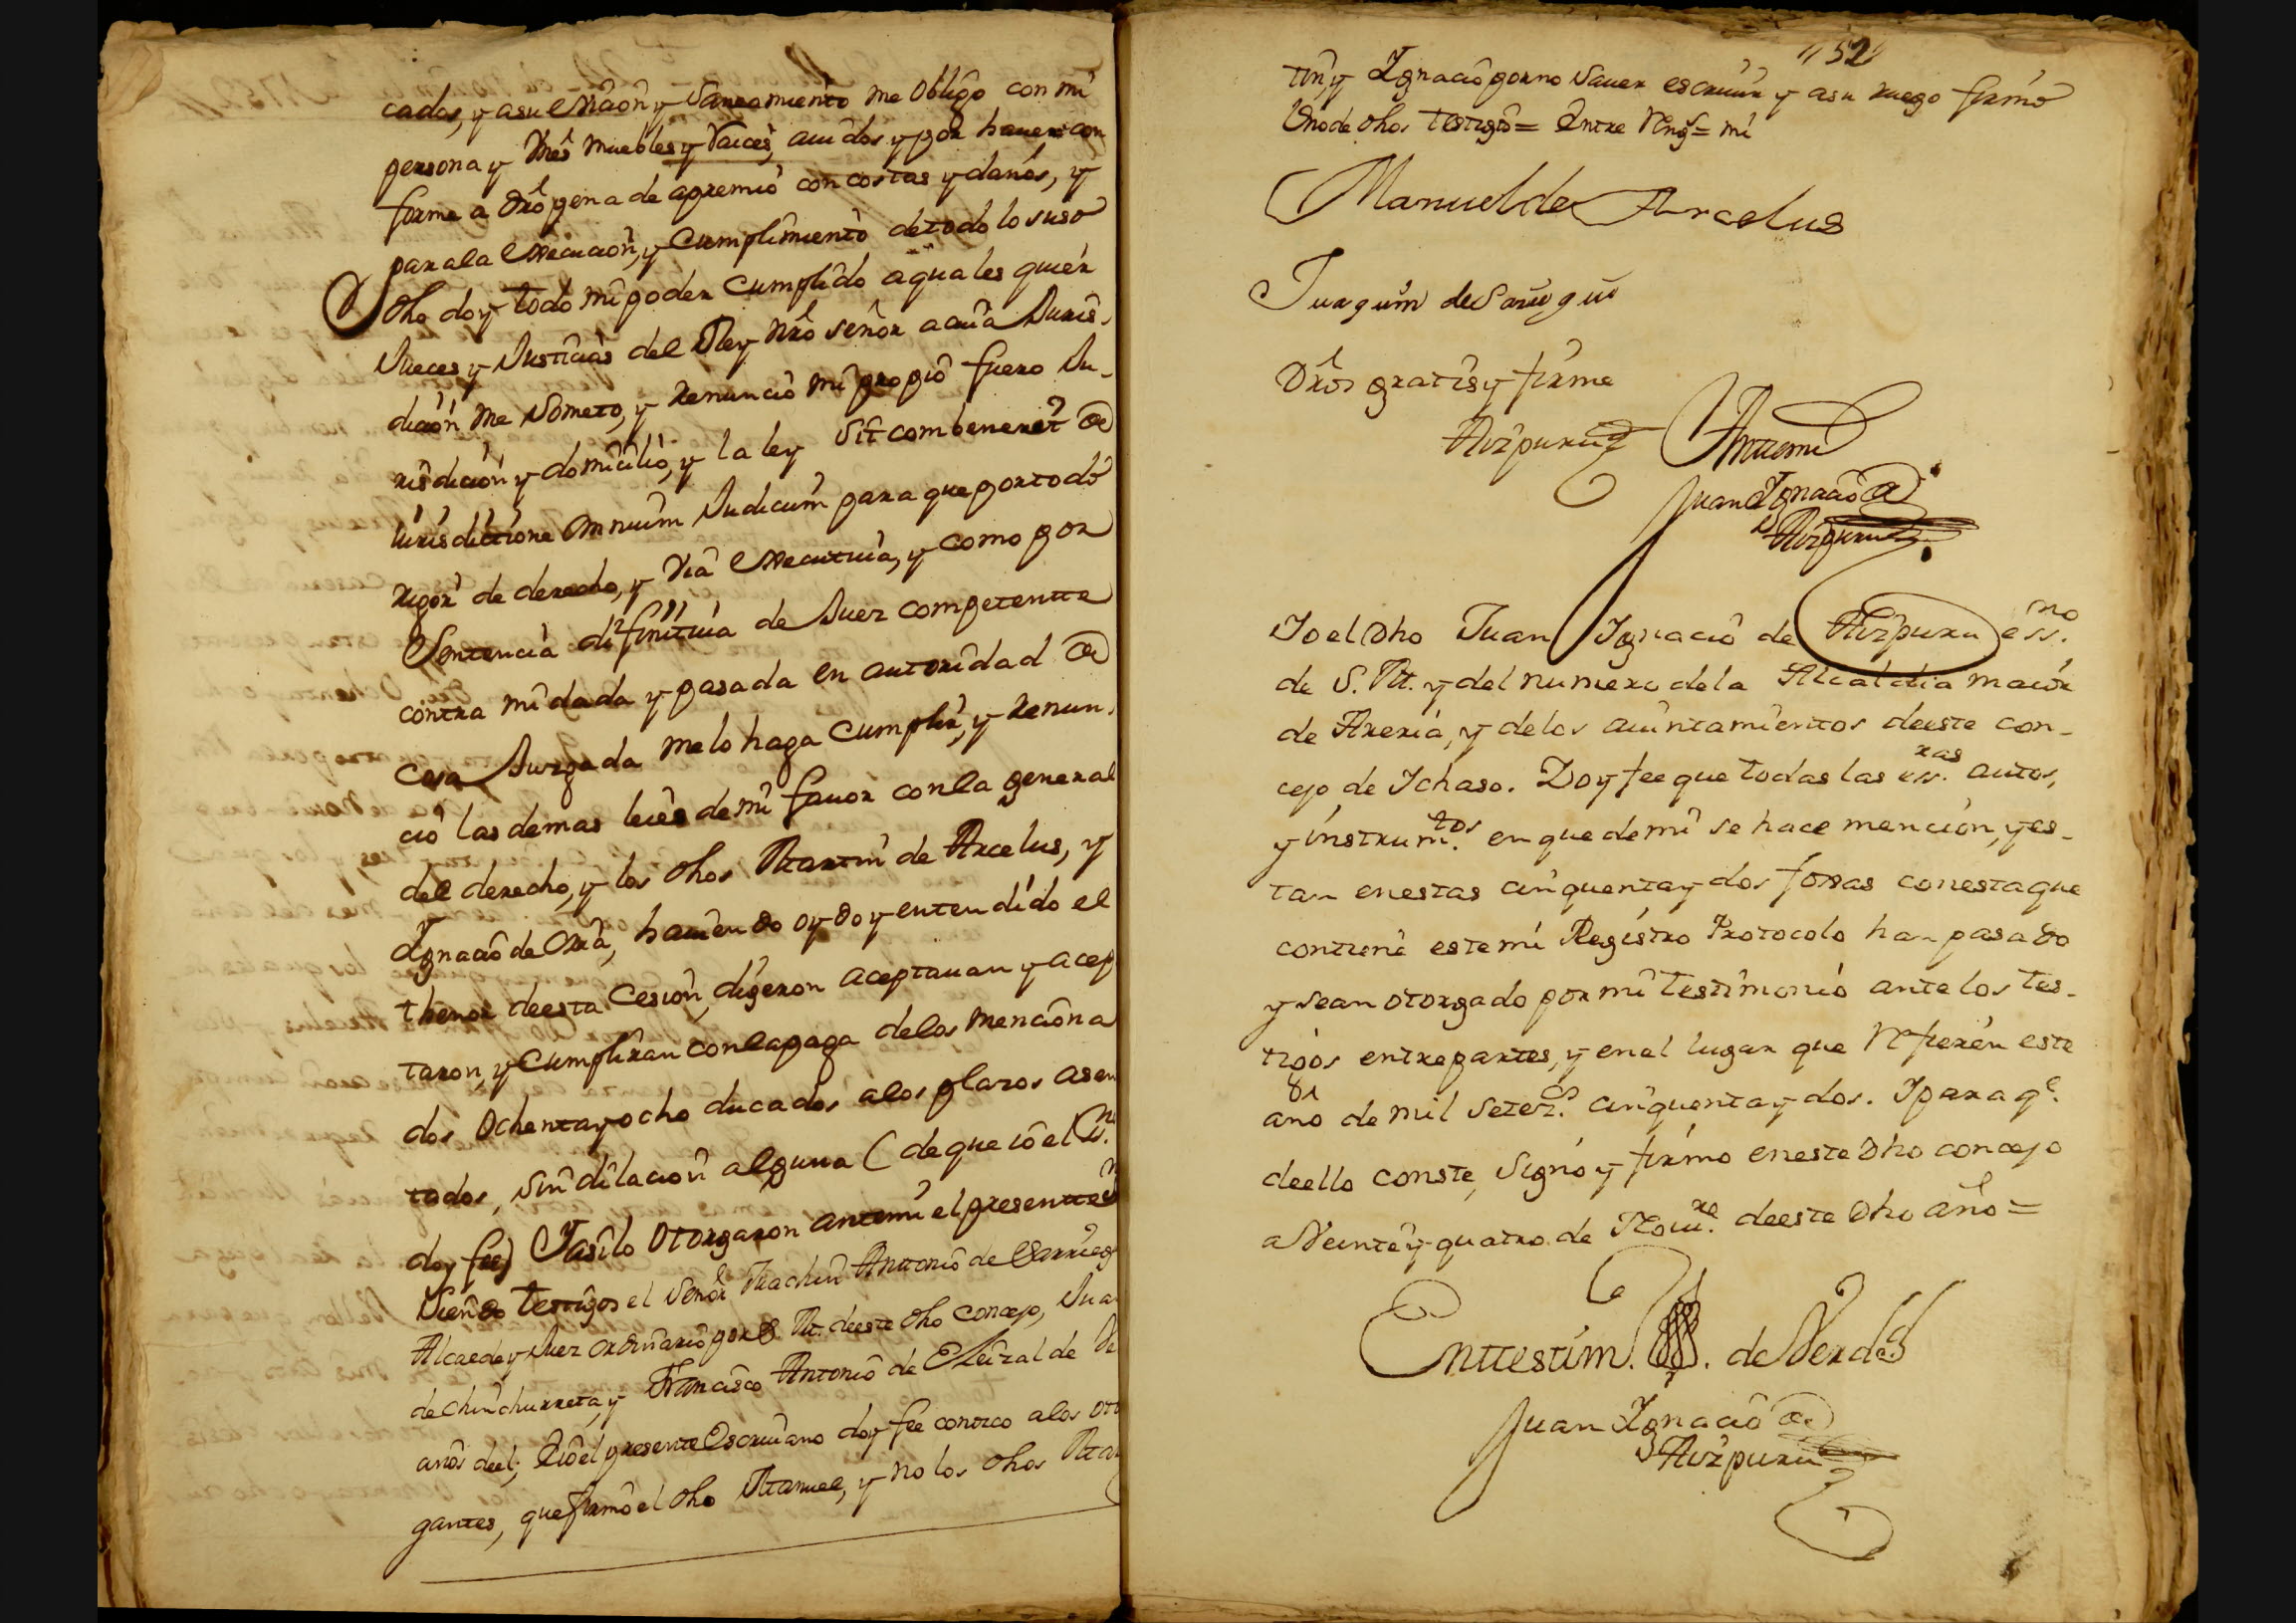 cados, y asu eviciōn y Saneamiento me obligo con mi
persona y vnês muebles y raices, auidos y por hauer con
forme a dro pena de apremio con costas y danos, y
para la execucion, y Cumplimiento de todo lo suso
dho doy todo mi poder Cumplido a quales quier
Jueces y Justicias del Rey nro señor a cuia Juris-
dicion me Someto, y renuncio mi propio fuero Ju-
risdicion y domicilio, y la ley Sit combenerit de
iurisdictione omnium Judicum para que por todo
rigor de derecho, y via executiua, y como por
Sentencia difinitiua de Juez competente
contra mi dada y pasada en autoridad de
Cosa Juzgada me lo haga Cumplir, y renun-
cio las demas leies de mi fauor con la general
del derecho, y los dhos Martin de Arcelus, y
Ygnacio de Oria, hauiendo oydo y entendido el
thenor de esta Cesion, digeron aceptauan y acep
taron, y Cumpliran con la paga de los menciona
dos Ochenta y ocho ducados a los plazos asen
tados, sin dilacion alguna (de que io el ess.no
doy fee) Y asi lo otorgaron ante mi el presente
Siendo testigos el Señor Juachin Antonio de
Alcalde y Juez ordinario por S. M. de este dho concejo, Jua
de Chinchurreta, y Francisco Antonio de Eleizalde Ve
anos de el; E io el presente Escriuano doy fee conozco a los oto
gantes, que firmo el dho Manuel, y no los dhos Mar
"52"
tin, y Ygnacio por no Sauer escriuir y asu ruego firmo
Vno de dhos testigos = Entre Rengs = mi
Manuel de Arcelus
Juaquin de
Dros gratis y firme
Aizpuru Ante mi
Juan Ygnacio de
Aizpuru
Yo el dho Juan Ygnacio de Aizpuru ess.no
de S. M. y del numero de la Alcaldia maior
de Areria, y de los aiuntamientos de este con-
cejo de Ychaso. Doy fee que todas las ess.ras autos,
y instrum.tos en que de mi se hace mencion, y es-
tan en estas cinquenta y dos fojas con esta que
contiene este mi Registro Protocolo han pasado
y se an otorgado por mi testimonio ante los tes-
tigos entre partes, y en el lugar que refieren este
año de mil Setez.s cinquenta y dos. Y para q.e
de ello conste, Signo y firmo en este dho concejo
a Veinte y quatro de Nou.re de este dho año =
En testim. de Verdad
Juan Ygnacio de
Aizpuru